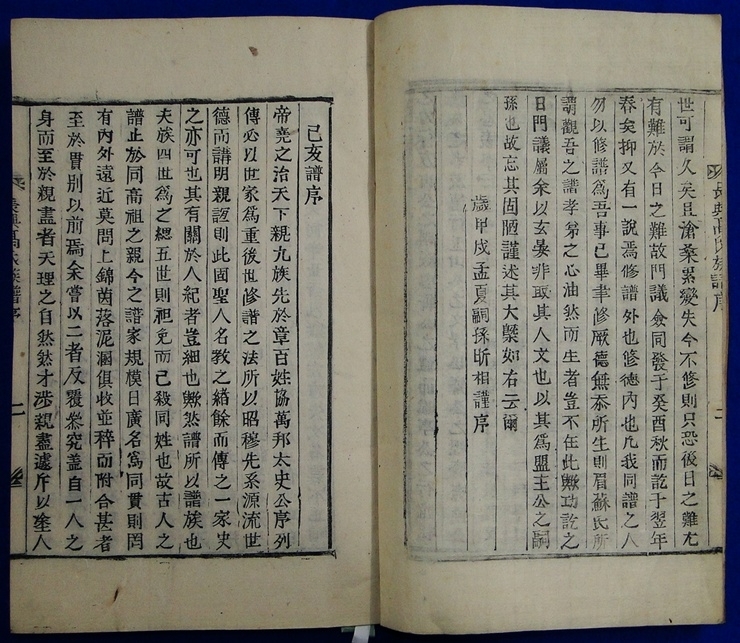 長興高氏族譜序
二
世可謂久矣且滄桑累變失今不修則只恐後日之難尤
有難於今日之難故門議僉同發于癸酉秋而訖于翌年
春矣抑又有一說焉修譜外也修德內也凡我同譜之人
勿以修譜爲吾事已畢聿修厥德無忝所生則眉蘇氏所
謂觀吾之譜孝弟之心油然而生者豈不在此歟功訖之
日門議屬余以玄晏非敢其人文也以其爲盟主公之嗣
孫也故忘其固陋謹述其大槩如右云爾
歲甲戌孟夏嗣孫昕相謹序
己亥譜序
帝堯之治天下親九族先於章百姓協萬邦太史公序列
傳必以世家爲重後世修譜之法所以昭穆先系源流世
德而講明親誼則此固聖人名教之緖餘而傳之一家史
之亦可也其有關於人紀者豈細也歟然譜所以譜族也
夫族四世爲之緦五世則袒免而已殺同姓也故古人之
譜止於同高祖之親今之譜家規模日廣名爲同貫則罔
有內外遠近莫問上錦茵落泥溷俱收並稡而附合甚者
至於貫別以前焉余嘗以二者反覆叅究盖自一人之
身而至於親盡者天理之自然然才涉親盡遽斥以塗人
長興高氏族譜序
二